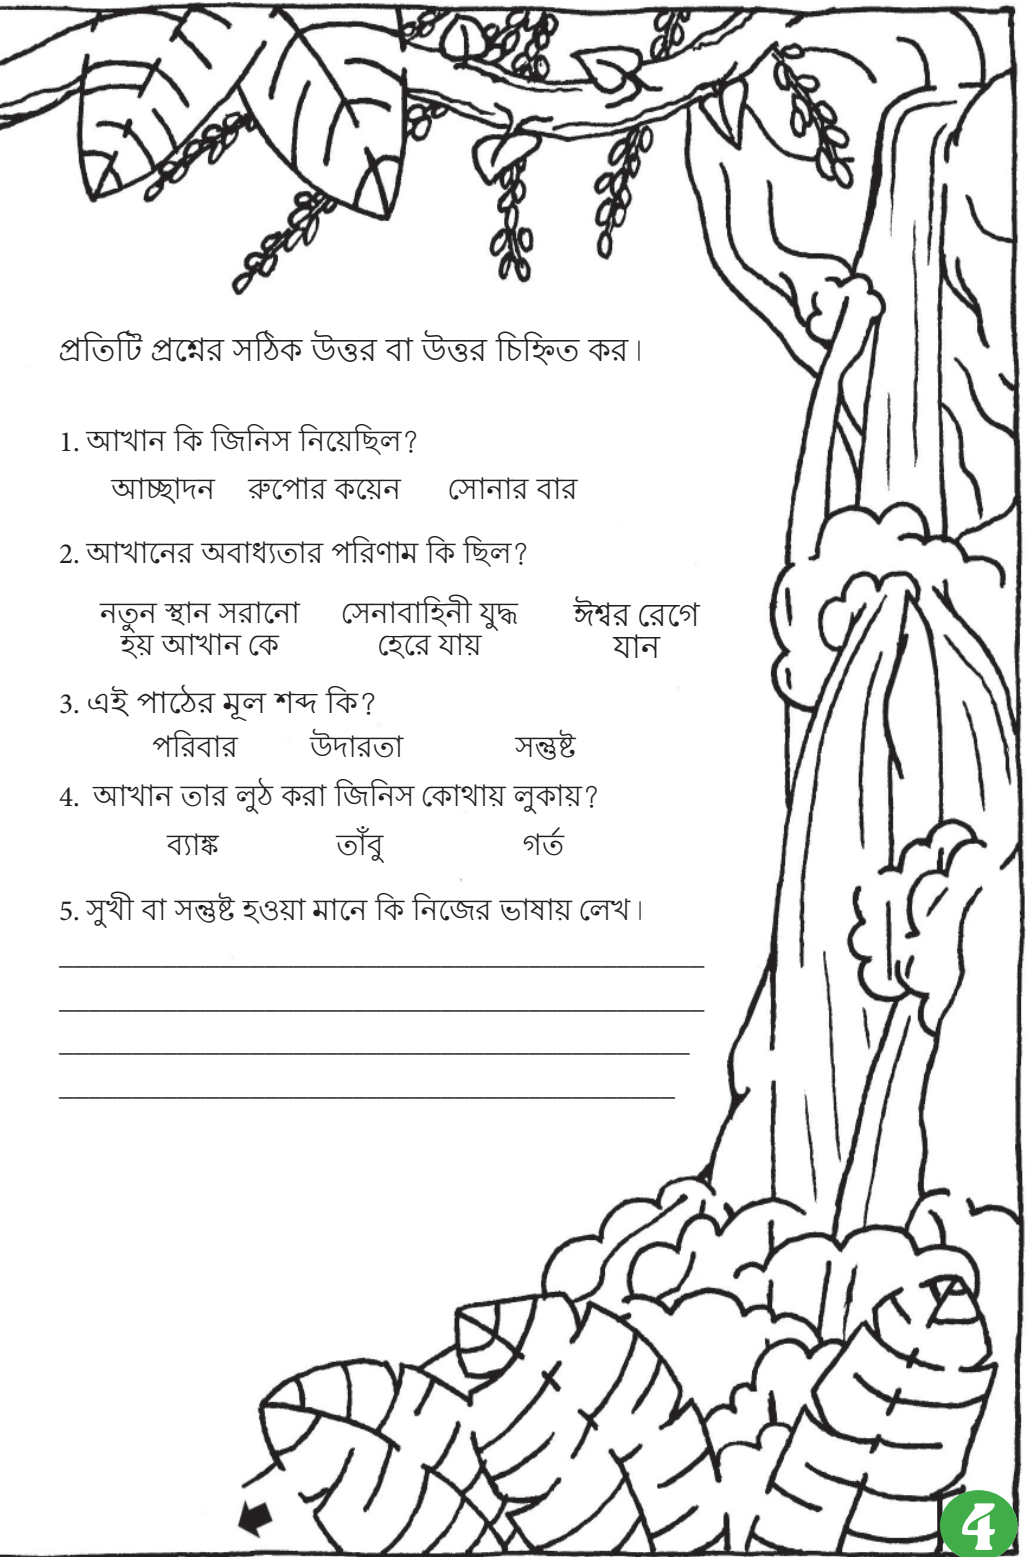 প্রতিটি প্রশ্নের সঠিক উত্তর বা উত্তর চিহ্নিত কর।
1. আখান কি জিনিস নিয়েছিল?
আচ্ছাদন রুপোর কয়েন সোনার বার
2. আখানের অবাধ্যতার পরিণাম কি ছিল?
নতুন স্থান সরানো সেনাবাহিনী যুদ্ধ ঈশ্বর রেগে
হয় আখান কে হেরে যায় যান
3. এই পাঠের মূল শব্দ কি?
পরিবার উদারতা সন্তুষ্ট
4. আখান তার লুঠ করা জিনিস কোথায় লুকায়?
ব্যাঙ্ক তাঁবু গর্ত
5. সুখী বা সন্তুষ্ট হওয়া মানে কি নিজের ভাষায় লেখ।
4